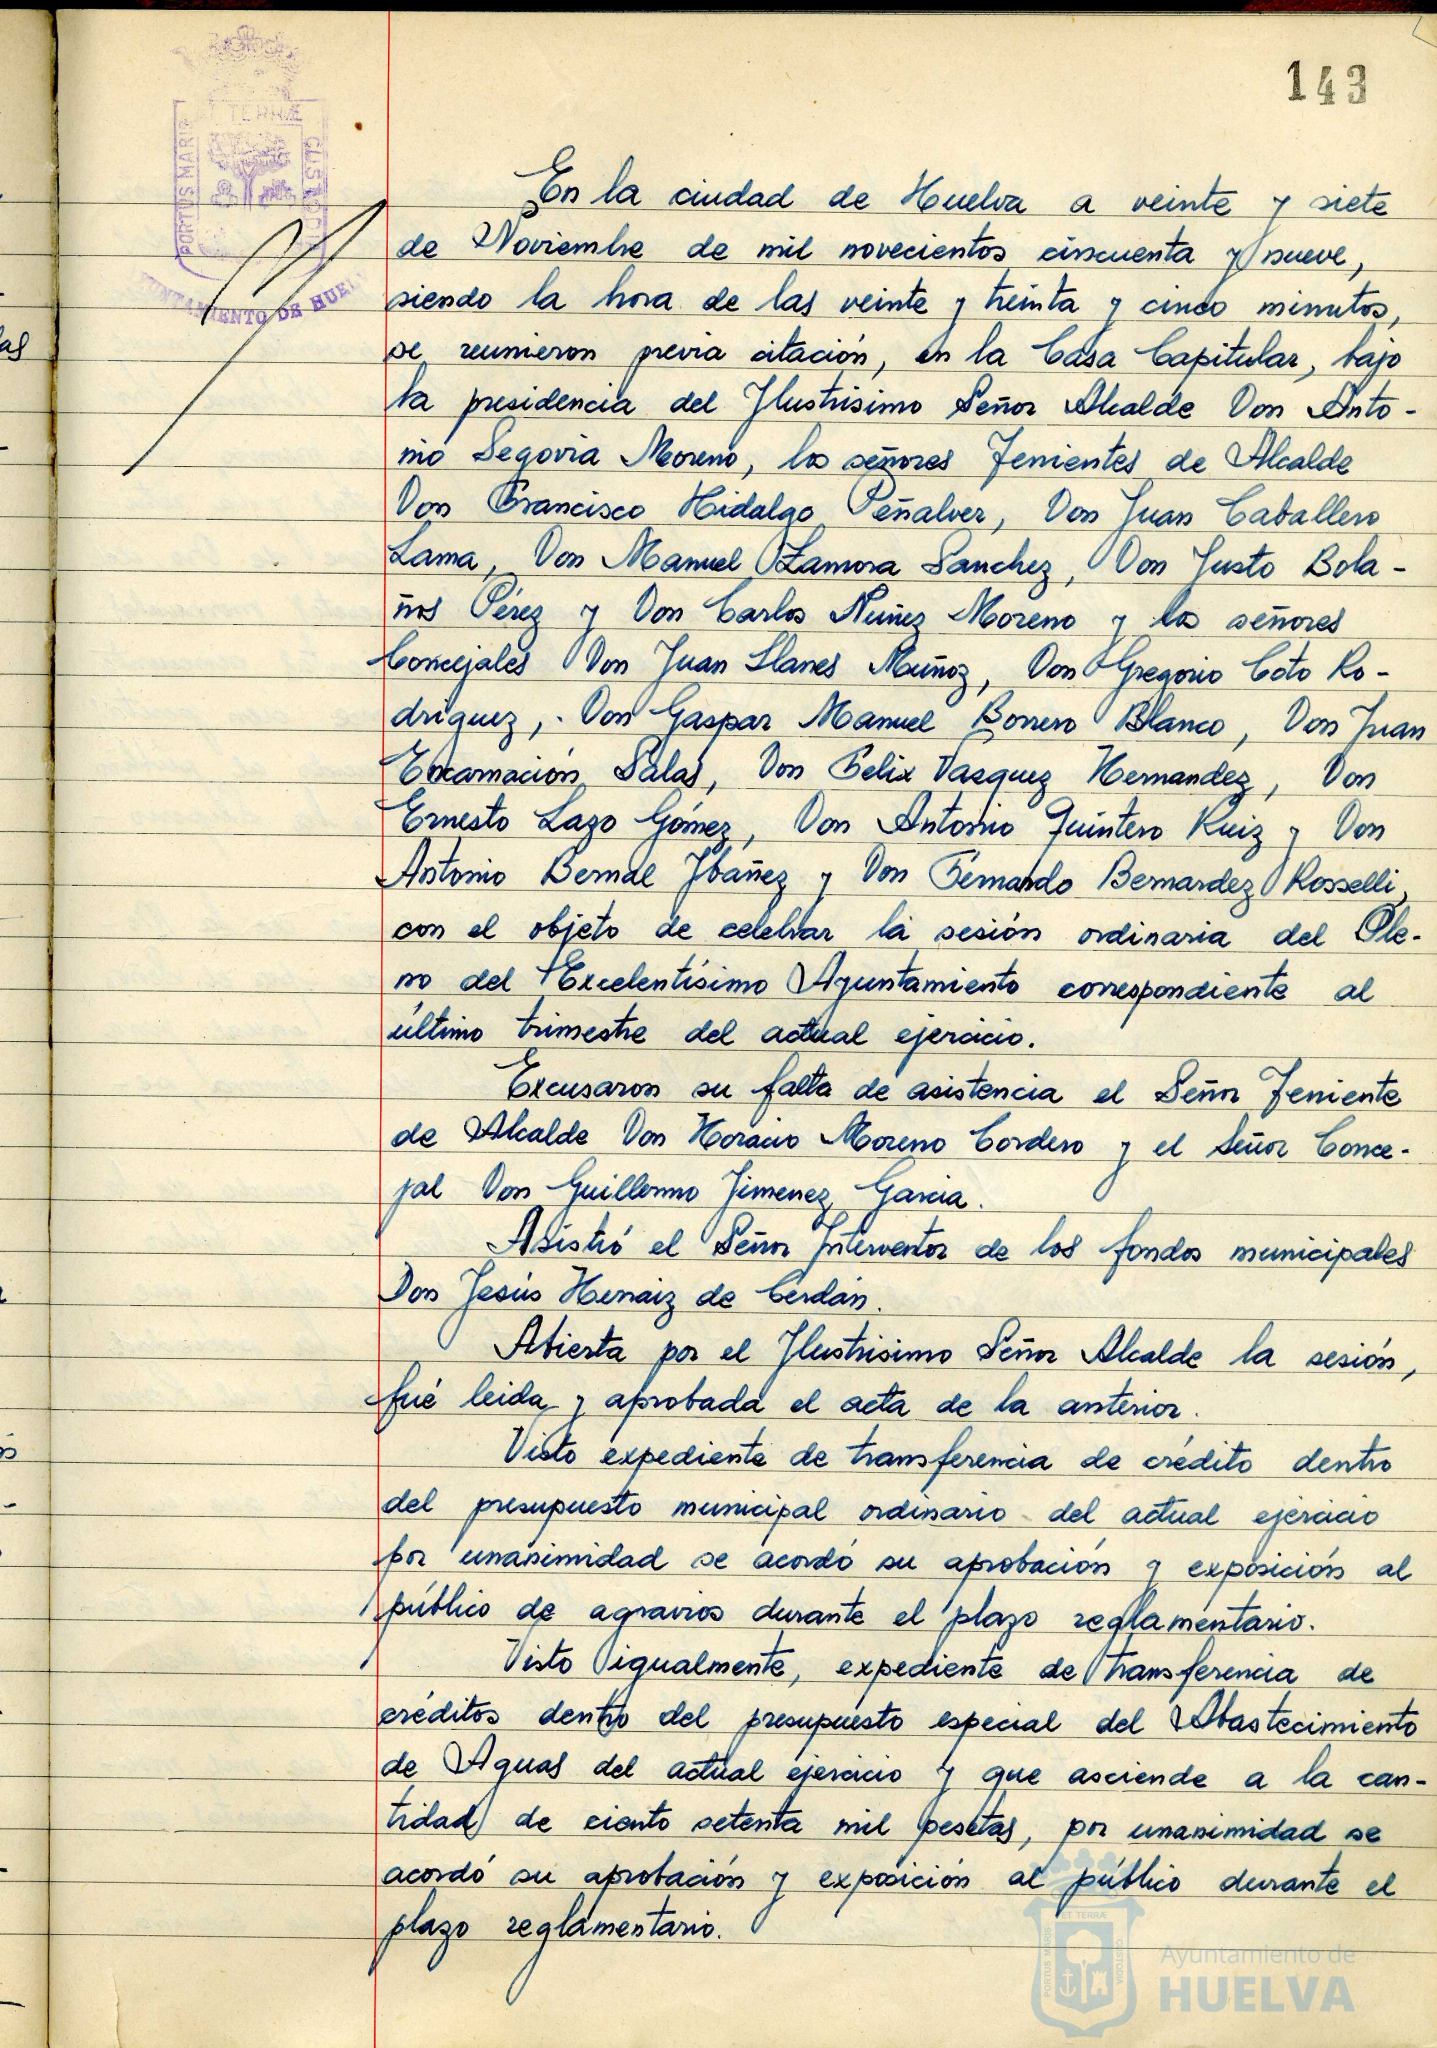 143
ET TERRÆ
PORTUS MARIS
CUSTODIA
AYUNTAMIENTO DE HUELVA
En la ciudad de Huelva a veinte y siete
de Noviembre de mil novecientos cincuenta y nueve,
siendo la hora de las veinte y treinta y cinco minutos,
se reunieron previa citación, en la Casa Capitular, bajo
la presidencia del Ilustrisimo Señor Alcalde Don Anto-
nio Segovia Moreno, los señores Tenientes de Alcalde
Don Francisco Hidalgo Peñalver, Don Juan Caballero
Lama, Don Manuel Zamora Sanchez, Don Justo Bola-
ños Pérez y Don Carlos Nuñez Moreno y los señores
Concejales Don Juan Llanes Muñoz, Don Gregorio Coto Ro-
driguez, Don Gaspar Manuel Borrero Blanco, Don Juan
Encarnación Salas, Don Felix Vasquez Hernandez, Don
Ernesto Lazo Gómez, Don Antonio Quintero Ruiz y Don
Antonio Bernal Ibañez y Don Fernando Bernardez Rosselli,
con el objeto de celebrar la sesión ordinaria del Ple-
no del Excelentísimo Ayuntamiento correspondiente al
último trimestre del actual ejercicio.
Excusaron su falta de asistencia el Señor Teniente
de Alcalde Don Horacio Moreno Cordero y el Señor Conce-
jal Don Guillermo Jimenez Garcia.
Asistió el Señor Interventor de los fondos municipales
Don Jesús Hernaiz de Cerdán.
Abierta por el Ilustrisimo Señor Alcalde la sesión,
fué leida y aprobada el acta de la anterior.
Visto expediente de transferencia de crédito dentro
del presupuesto municipal ordinario del actual ejercicio
por unanimidad se acordó su aprobación y exposición al
público de agravios durante el plazo reglamentario.
Visto igualmente, expediente de transferencia de
créditos dentro del presupuesto especial del Abastecimiento
de Aguas del actual ejercicio y que asciende a la can-
tidad de ciento setenta mil pesetas, por unanimidad se
acordó su aprobación y exposición al público durante el
plazo reglamentario.
ET TERRÆ
PORTUS MARIS
CUSTODIA
Ayuntamiento de
HUELVA